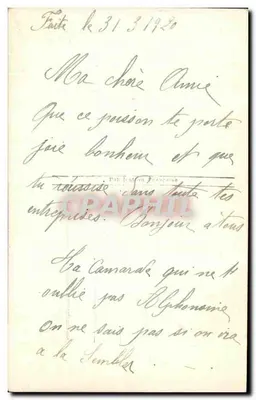 le 31 3 1920
Ma chère Amie
Que ce poisson te porte
joie bonheur et que
tu réussise dans toute tes
entreprises. Bonjour à tous
Ta Camarade qui ne t
oublie pas Alphonsine
On ne sais pas si on ira
a la